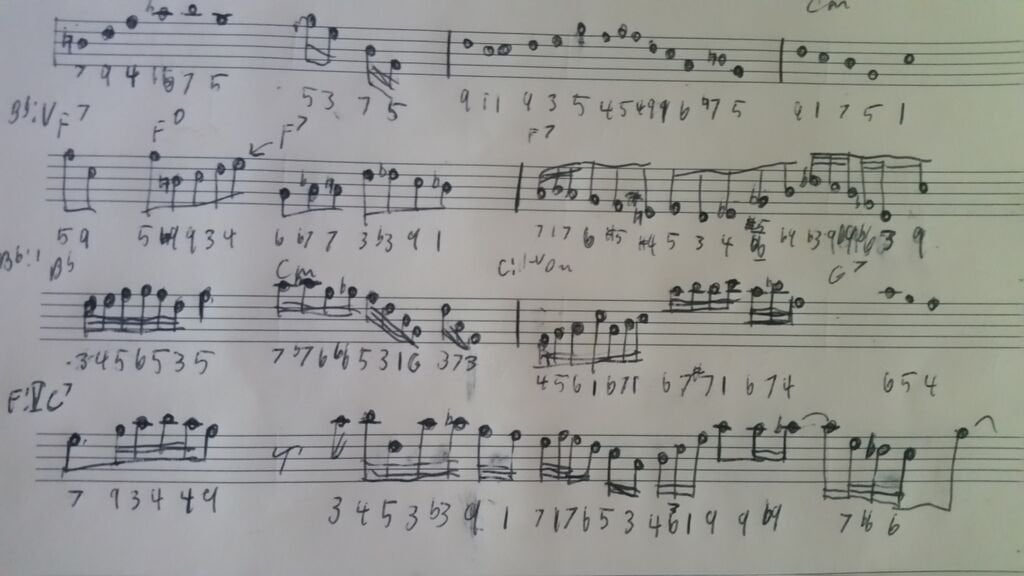 Cm
7 9 4 7 5 5 3 7 5 9 1 1 9 3 5 4 5 4 9 9 6 ♮7 5 9 1 7 5 1
Bb:V F7 F0 F7 F7
5 9 5 b9 9 3 4 6 b7 7 3 b3 9 1 7 1 7 6 #5 #4 5 3 4 b9 b3 9 3 9
Bb:1 Bb Cm C: G7
3 4 5 6 5 3 5 7 b7 6 b6 5 3 1 6 3 7 3 4 5 6 1 6 7 1 6 7 #7 1 6 7 4 6 5 4
F:V C7
7 9 3 4 4 9 3 4 5 3 b3 9 1 7 1 7 6 5 3 4 6 1 9 9 b9 7 b6 6